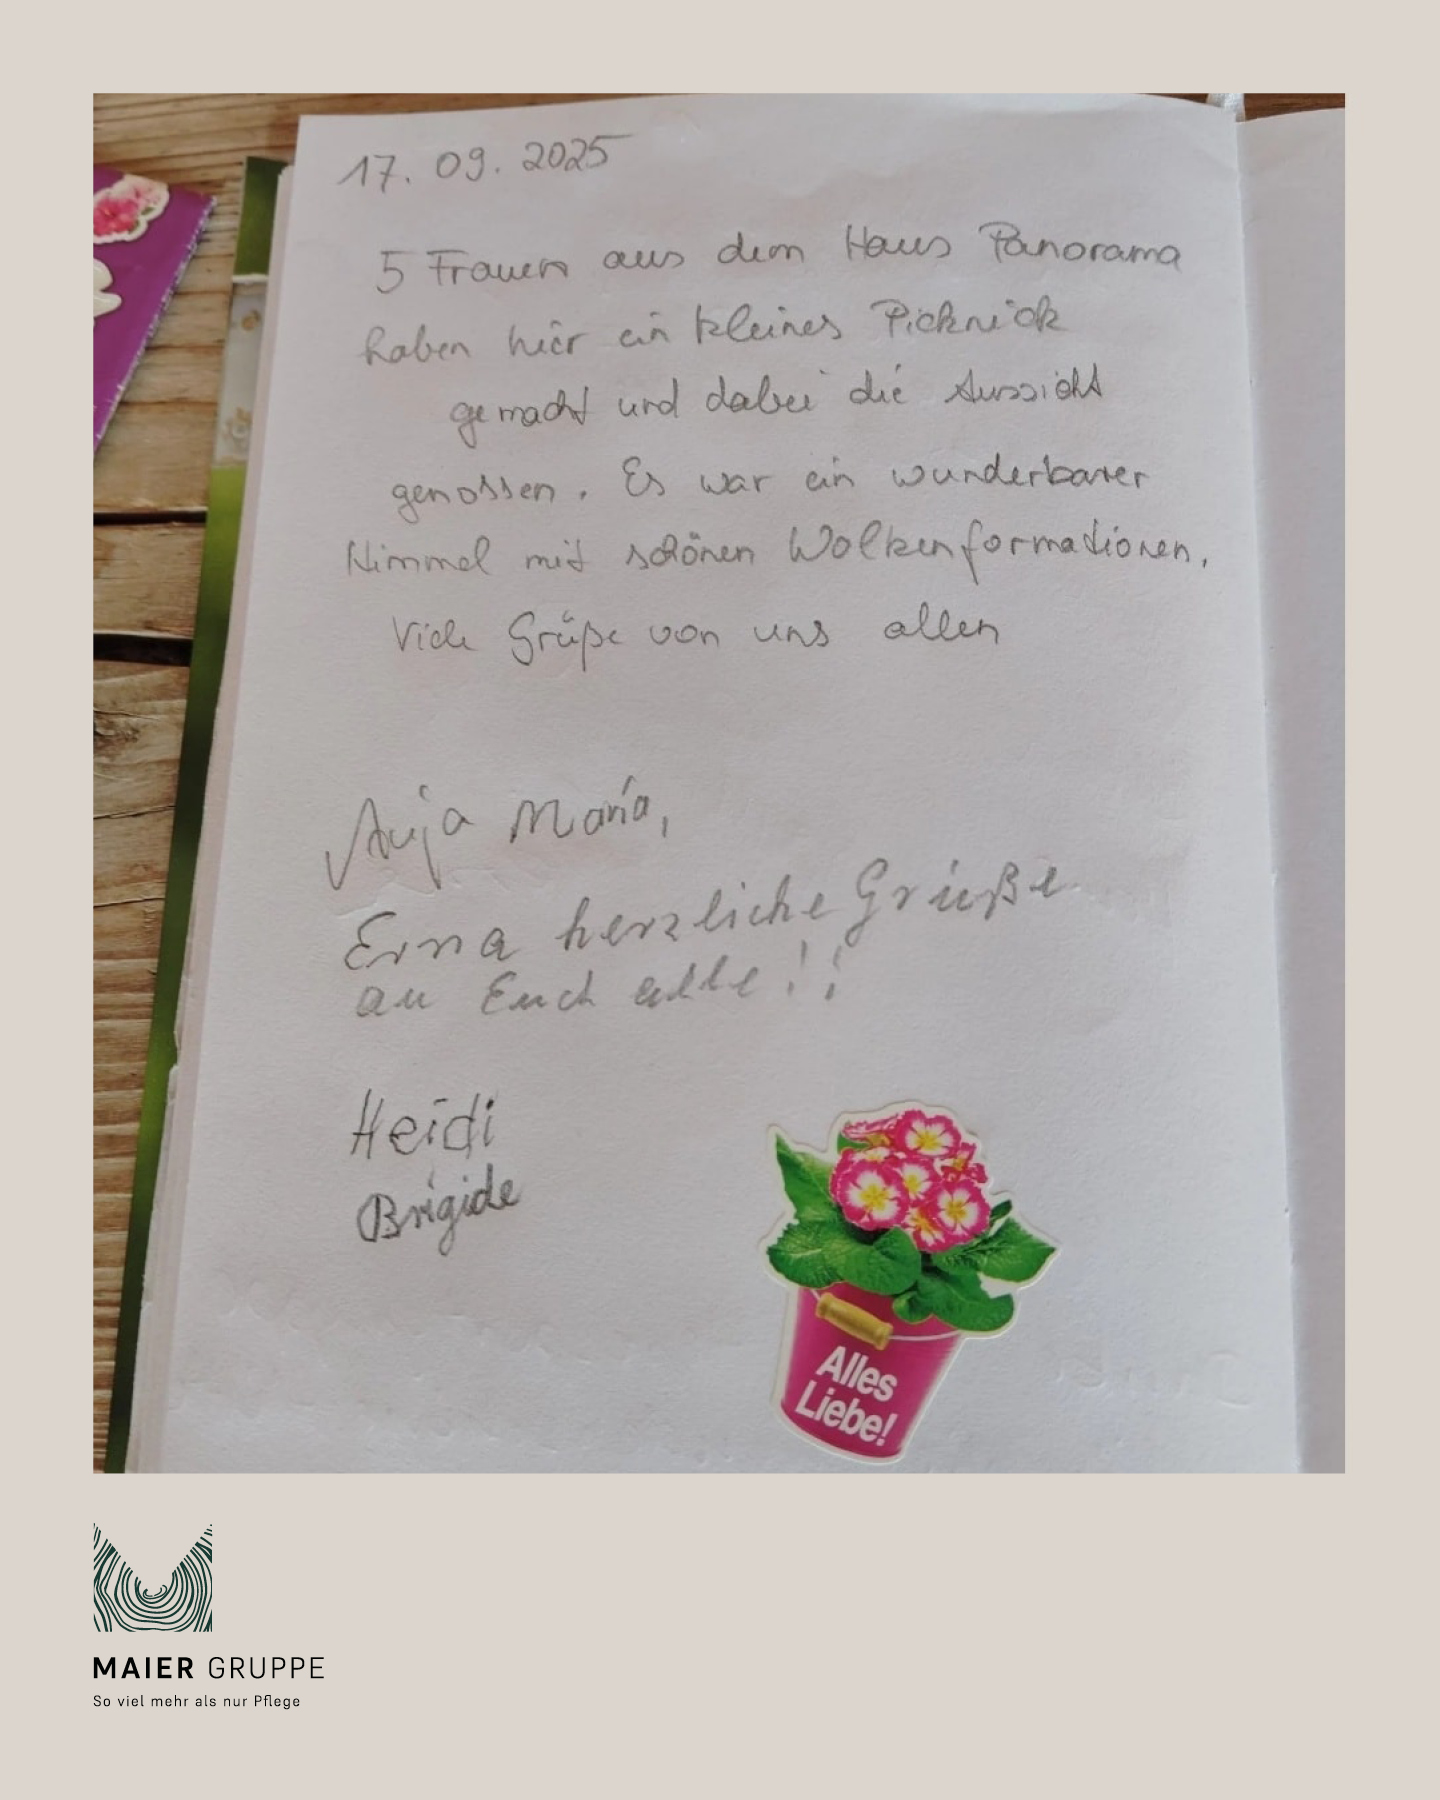 17. 09. 2025
5 Frauen aus dem Haus Panorama
haben hier ein kleines Picknick
gemacht und dabei die Aussicht
genossen. Es war ein wunderbarer
Himmel mit schönen Wolkenformationen.
Viele Grüße von uns allen
Anja Maria,
Erna herzliche Grüße
an Euch alle!!
Heidi
Brigide
Alles
Liebe!
MAIER GRUPPE
So viel mehr als nur Pflege